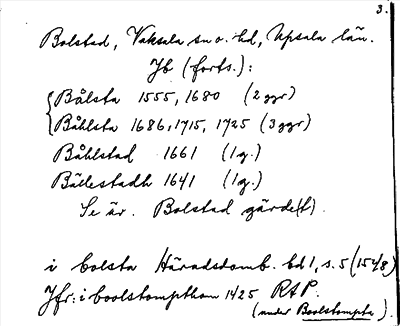 3.
Bolstad, Vaksala sn o. hd, Upsala län.
Jb (forts.):
Bålsta 1555, 1680 (2 ggr)
Båhlsta 1686, 1715, 1725 (3 ggr)
Båhlstad 1661 (1 g.)
Bållestadh 1641 (1 g.)
Se äv. Bolstad gärde(t).
i bolsta Häradsdomb. bd 1, s. 5 (1578)
Jfr: i boolstompthom 1425 RAP.
(under Boolstompta).